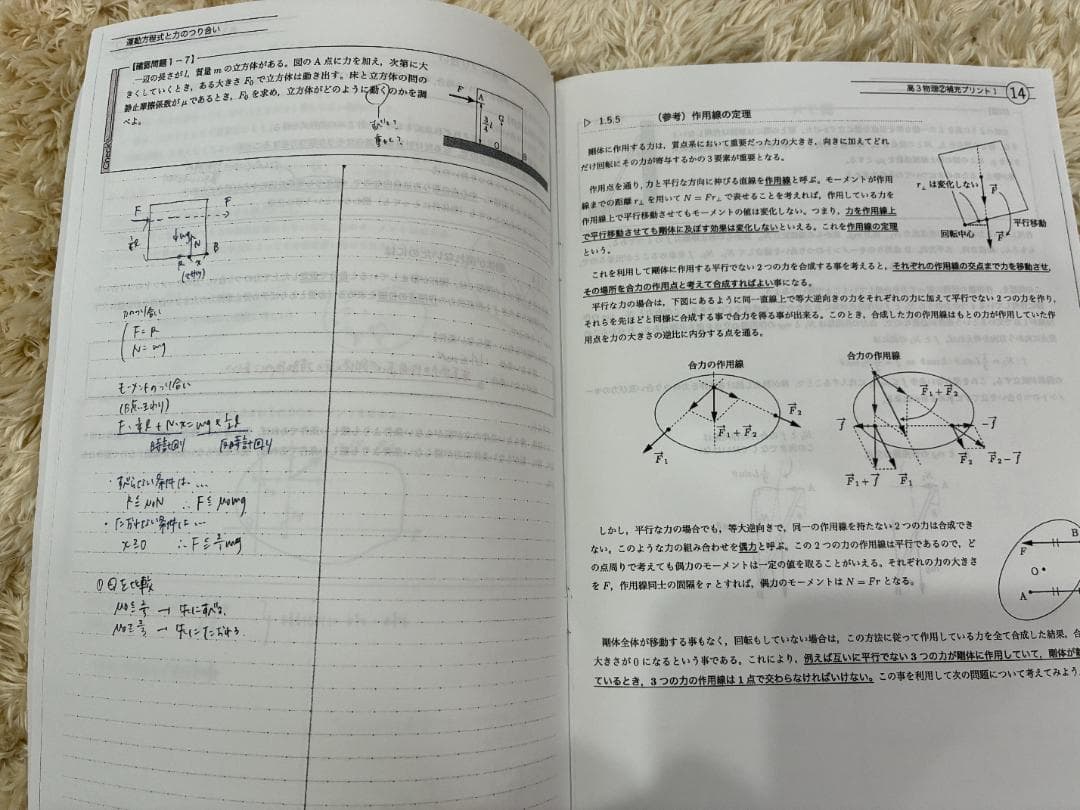 運動方程式と力のつり合い
【確認問題1-7】
一辺の長さがl，質量mの立方体がある。図のA点に力を加え，次第に大
きくしていくとき，ある大きさF₀で立方体は動き出す。床と立方体の間の
静止摩擦係数がμであるとき，F₀を求め，立方体がどのように動くのかを調
べよ。
F
A
G
B
F
F
mg
N
B
R
x
力のつり合い
F=R
N=mg
モーメントのつり合い
(B点まわり)
時計回り
反時計回り
R≦μ₀N ∴F≦μ₀mg
x≧0
①②を比較
高3物理②補充プリント1
14
▷ 1.5.5 （参考）作用線の定理
剛体に作用する力は，質点系において重要だった力の大きさ，向きに加えてどれ
だけ回転にその力が寄与するかの3要素が重要となる。
作用点を通り，力と平行な方向に伸びる直線を作用線と呼ぶ。モーメントが作用
線までの距離r⊥を用いてN = Fr⊥で表せることを考えれば，作用している力を
作用線上で平行移動させてもモーメントの値は変化しない。つまり，力を作用線上
で平行移動させても剛体に及ぼす効果は変化しないといえる。これを作用線の定理
という。
r⊥は変化しない
F
平行移動
回転中心
F
これを利用して剛体に作用する平行でない2つの力を合成する事を考えると，それぞれの作用線の交点まで力を移動させ，
その場所を合力の作用点と考えて合成すればよい事になる。
平行な力の場合は，下図にあるように同一直線上で等大逆向きの力をそれぞれの力に加えて平行でない2つの力を作り，
それらを先ほどと同様に合成する事で合力を得る事が出来る。このとき，合成した力の作用線はもとの力が作用していた作
用点を力の大きさの逆比に内分する点を通る。
合力の作用線
F₂
F₁+F₂
F₁
合力の作用線
F₁+F₂
f
-f
F₂
F₂-f
F₁+f
F₁
しかし，平行な力の場合でも，等大逆向きで，同一の作用線を持たない2つの力は合成でき
ない。このような力の組み合わせを偶力と呼ぶ。この2つの力の作用線は平行であるので，ど
の点周りで考えても偶力のモーメントは一定の値を取ることがいえる。それぞれの力の大きさ
をF，作用線同士の間隔をrとすれば，偶力のモーメントはN = Frとなる。
B
F
O
A
剛体全体が移動する事もなく，回転もしていない場合は，この方法に従って作用している力を全て合成した結果，合
大きさが0になるという事である。これにより，例えば互いに平行でない3つの力が剛体に作用していて，剛体が
ているとき，3つの力の作用線は1点で交わらなければいけない。この事を利用して次の問題について考えてみよう